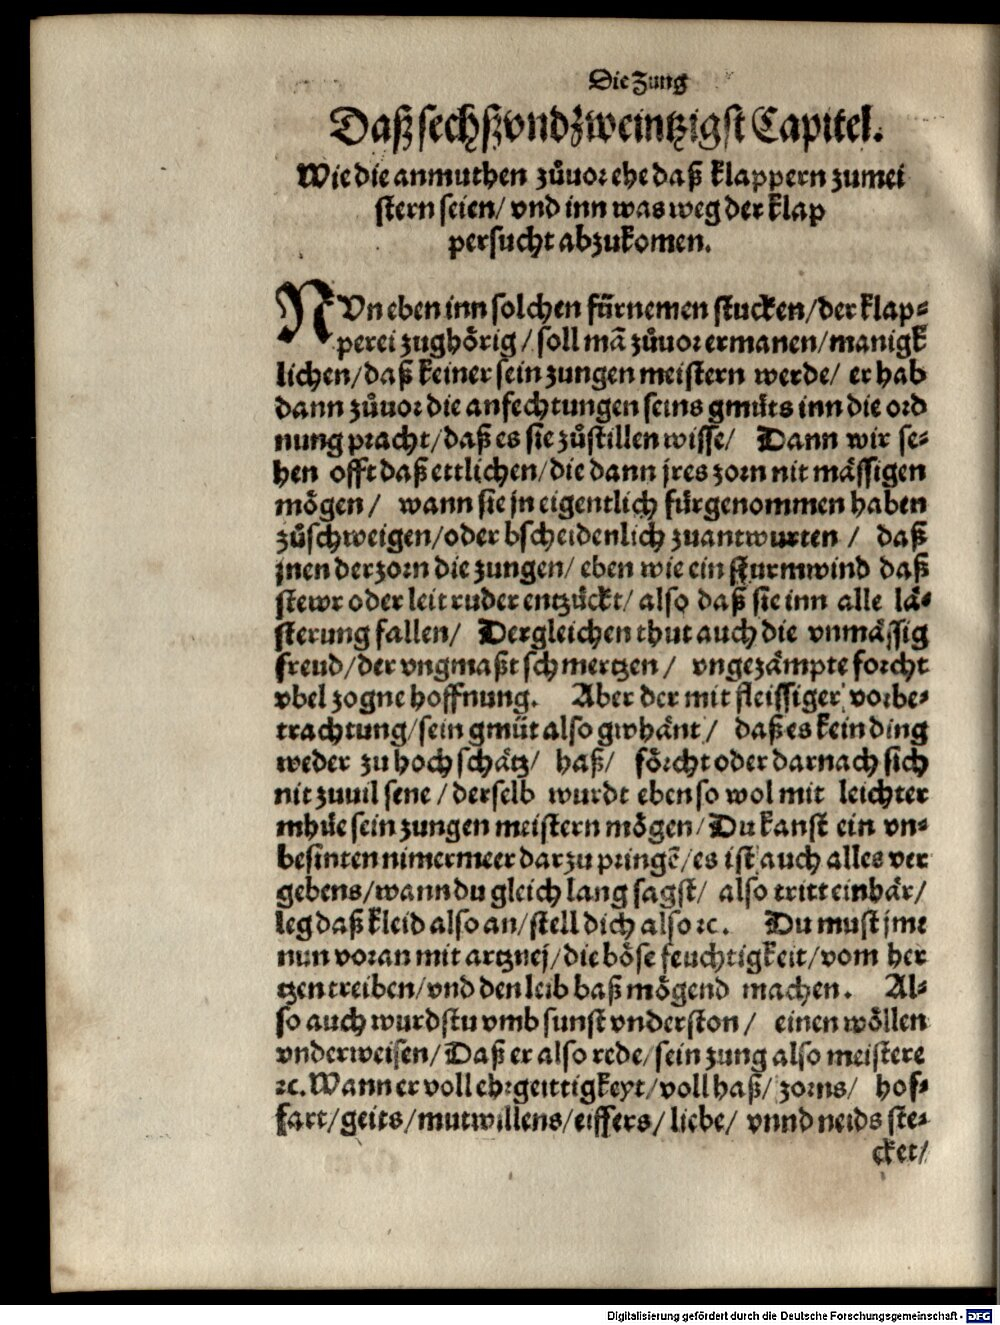 Die Zung
Daß sechßvndzweintzigst Capitel.
Wie die anmuthen zůuor ehe daß klappern zumei
stern seien/ vnd inn was weg der klap
persucht abzukomen.
NVn eben inn solchen fürnemen stucken/der klap⸗
perei zughörig/soll mã zůuor ermanen/manigk
lichen/daß keiner sein zungen meistern werde/ er hab
dann zůuor die anfechtungen seins gmüts inn die ord
nung pracht/daß es sie zůstillen wisse/ Dann wir se⸗
hen offt daß ettlichen/die dann jres zorn nit mässigen
mögen/ wann sie jn eigentlich fürgenommen haben
zůschweigen/oder bscheidenlich zuantwurten/ daß
jnen der zorn die zungen/ eben wie ein sturmwind daß
stewr oder leit ruder entzückt/ also daß sie inn alle lä⸗
sterung fallen/ Dergleichen thut auch die vnmässig
freud/der vngmaßt schmertzen/ vngezämpte forcht
vbel zogne hoffnung. Aber der mit fleissiger vorbe⸗
trachtung/sein gmüt also gwhänt/ daß es kein ding
weder zu hoch schätz/ haß/ förcht oder darnach sich
nit zuuil sene/derselb wurdt eben so wol mit leichter
mhüe sein zungen meistern mögen/Du kanst ein vn⸗
besinten nimermeer darzu pringẽ/es ist auch alles ver
gebens/wann du gleich lang sagst/ also tritt einhär/
leg daß kleid also an/stell dich also ꝛc. Du must jme
nun voran mit artznej/die böse feuchtigkeit/vom her
tzen treiben/vnd den leib baß mögend machen. Al⸗
so auch wurdstu vmb sunst vnderston/ einen wöllen
vnderweisen/Daß er also rede/sein zung also meistere
ꝛc. Wann er voll ehrgeittigkeyt/voll haß/ zorns/ hof⸗
fart/geits/mutwillens/eiffers/liebe/ vnnd neids ste⸗
cket/
Digitalisierung gefördert durch die Deutsche Forschungsgemeinschaft - DFG